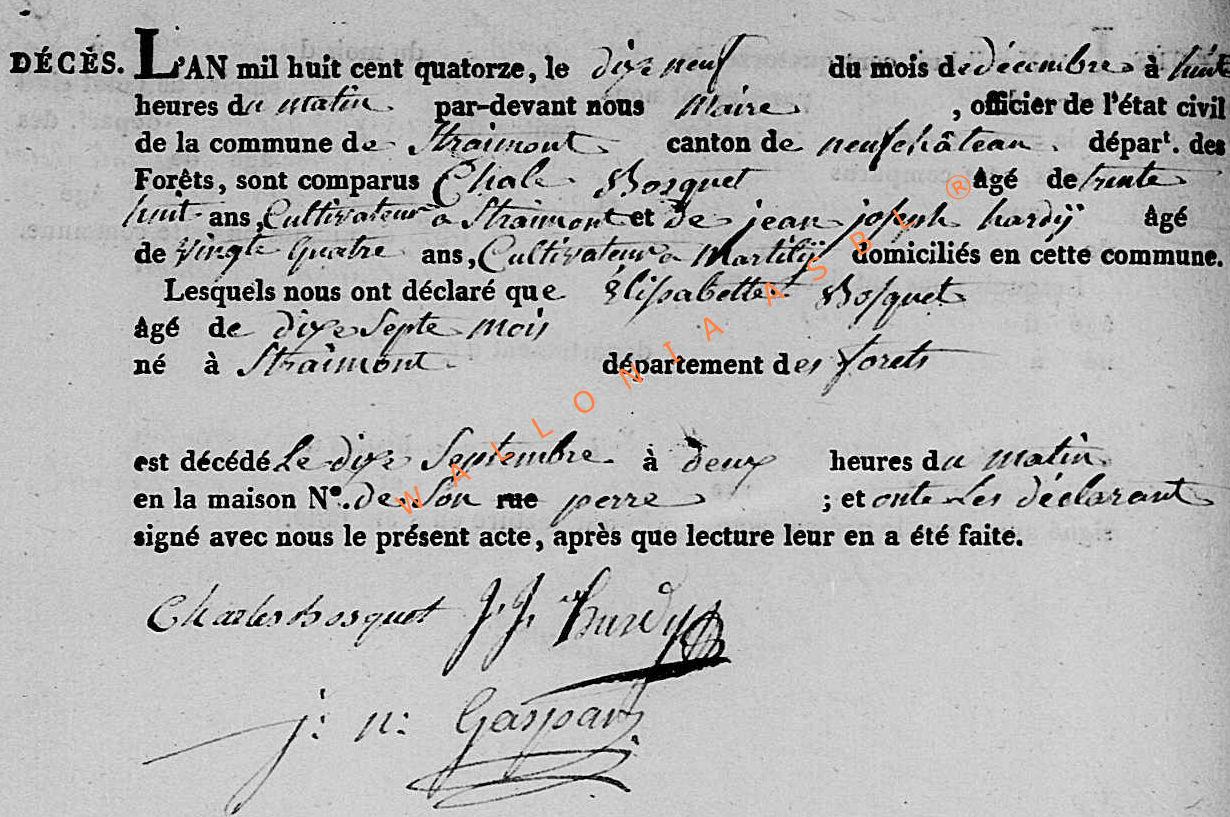 DÉCÈS. L'AN mil huit cent quatorze, le dixe neuf du mois de décembre à huit
heures du matin par-devant nous Maire , officier de l'état civil
de la commune de Straimont canton de neufchâteau . départ. des
Forêts, sont comparus Chale Bosquet âgé de trente
huit ans, Cultivateur a Straimont et de jean joseph hardÿ âgé
de vingte quatre ans, Cultivateur a Martilÿ domiciliés en cette commune.
Lesquels nous ont déclaré que Élisabette Bosquet
âgé de dixe septe mois
né à Straimont département des forets
est décédé le dixe Septembre à deux heures du matin
en la maison N°. de Son rue perre ; et onte les déclarant
signé avec nous le présent acte, après que lecture leur en a été faite.
Charles bosquet J. J. hardy
j: n: Gaspar
WALLONIA ASBL ®